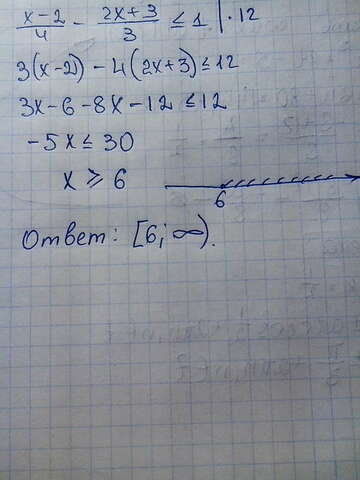 (x-2)/4 - (2x+3)/3 ≤ 1 | · 12
3(x-2) - 4(2x+3) ≤ 12
3x-6-8x-12 ≤ 12
-5x ≤ 30
x ≥ 6
6
Ответ: [6; ∞).